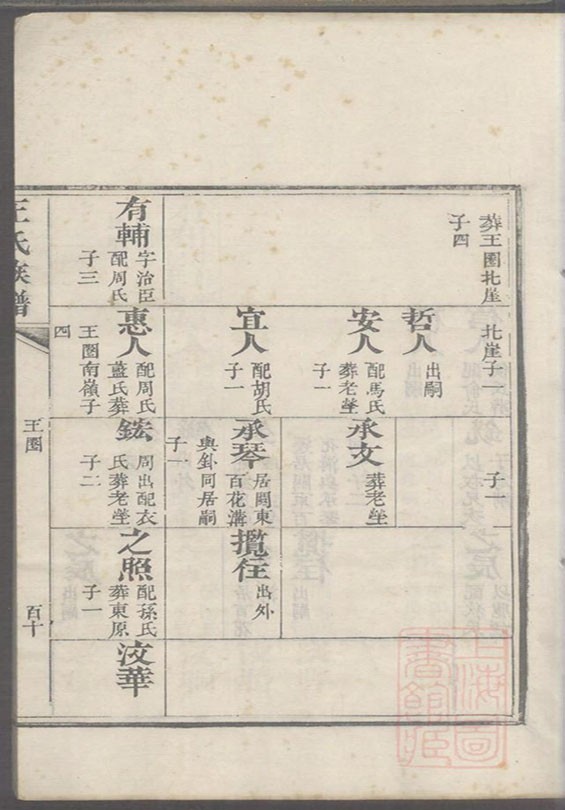 葬王圈北崖
子四
有輔
字治臣
配周氏
子三
北崖子一
哲人
出嗣
安人
配馬氏
葬老塋
子一
宜人
配胡氏
子一
惠人
配周氏
藍氏葬
王圈南嶺子
四
子一
承文
葬老塋
承琴
居關東
百花溝
與卦同居嗣
子一
鋐
周出配衣
氏葬老塋
子二
攬住
出外
之照
配孫氏
葬東原
子一
汶華
王氏族譜
王圈
百十
上海圖書館藏